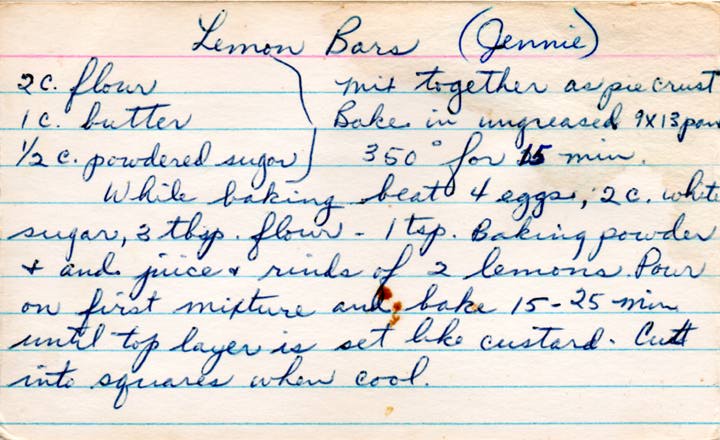 Lemon Bars (Jennie)
2 c. flour mix together as pie crust
1 c. butter Bake in ungreased 9x13 pan
1/2 c. powdered sugar 350° for 15 min.
While baking beat 4 eggs, 2 c. white
sugar, 3 tbsp. flour - 1 tsp. Baking powder
+ and juice + rinds of 2 lemons. Pour
on first mixture and bake 15-25 min
until top layer is set like custard. Cut
into squares when cool.